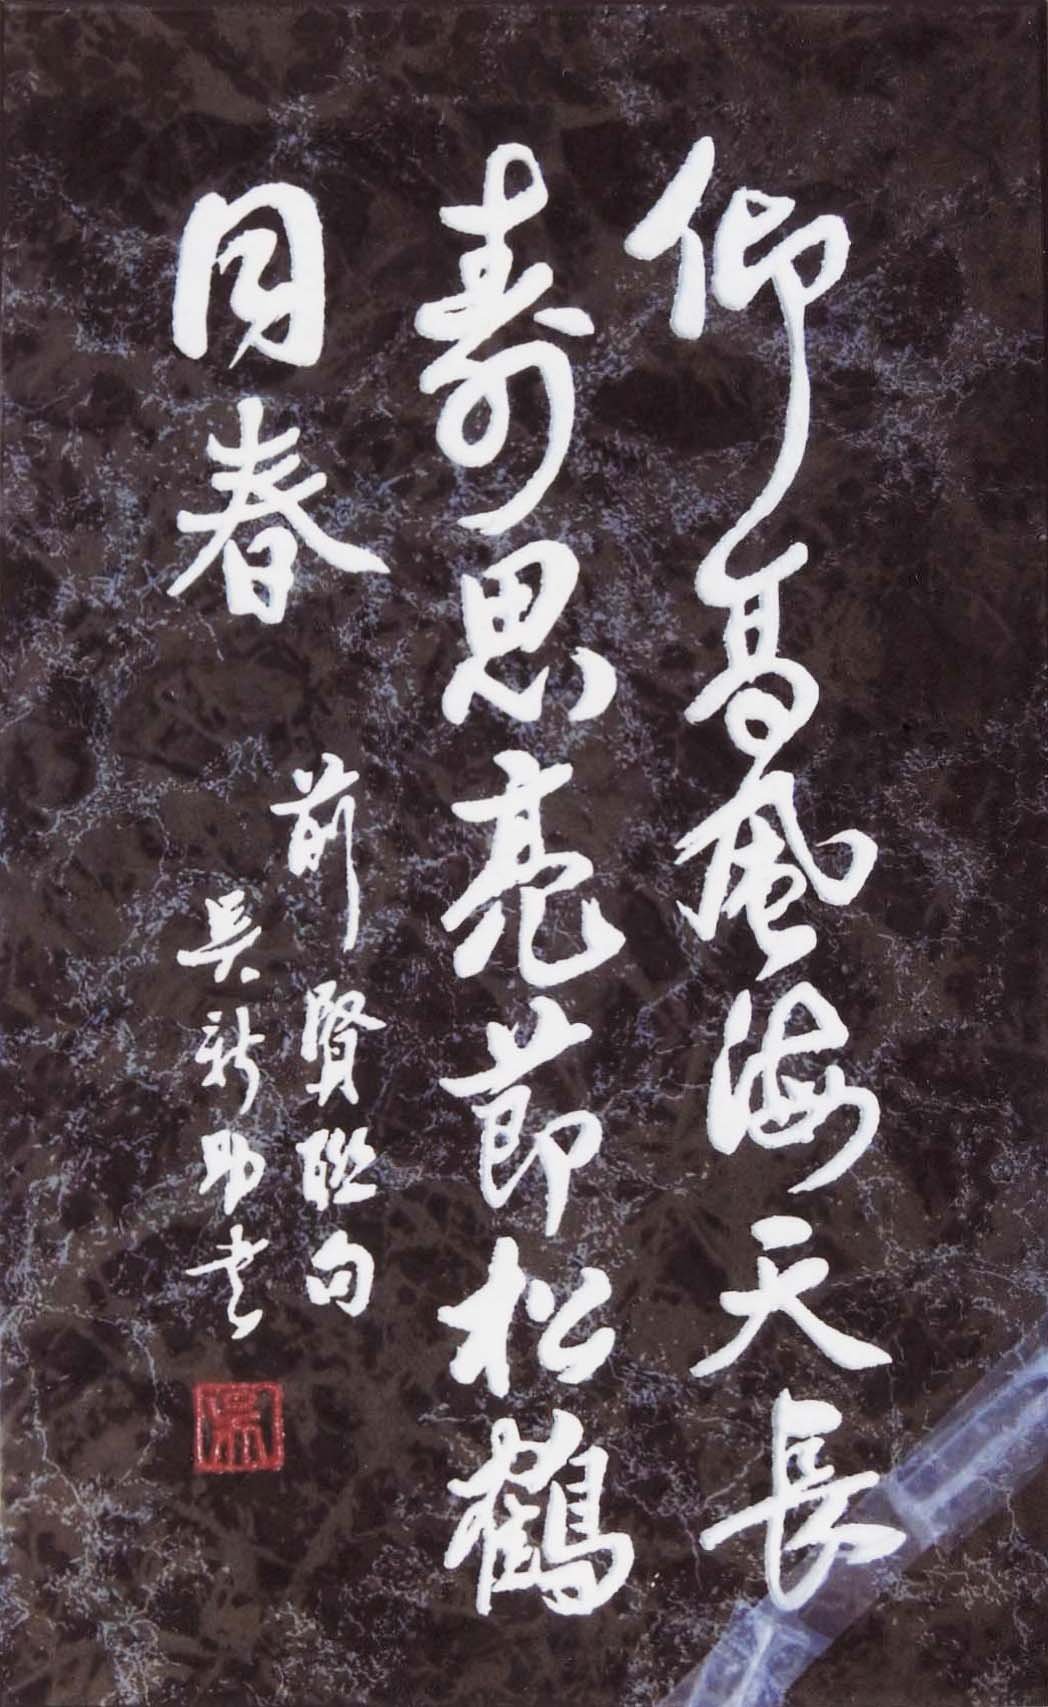 仰高風海天長
壽思亮節松鶴
同春
前賢聯句
吳新助書
吳